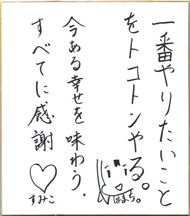 一番やりたいこと
をトコトンやる。
今ある幸せを味わう.
すべてに感謝
すみこ